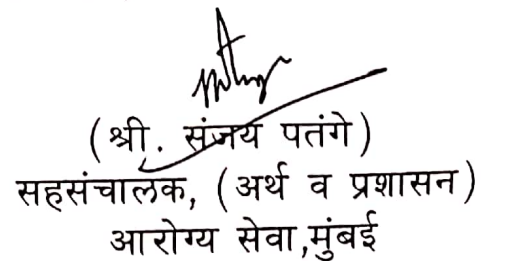 (श्री. संजय पतंगे)
सहसंचालक, (अर्थ व प्रशासन)
आरोग्य सेवा,मुंबई